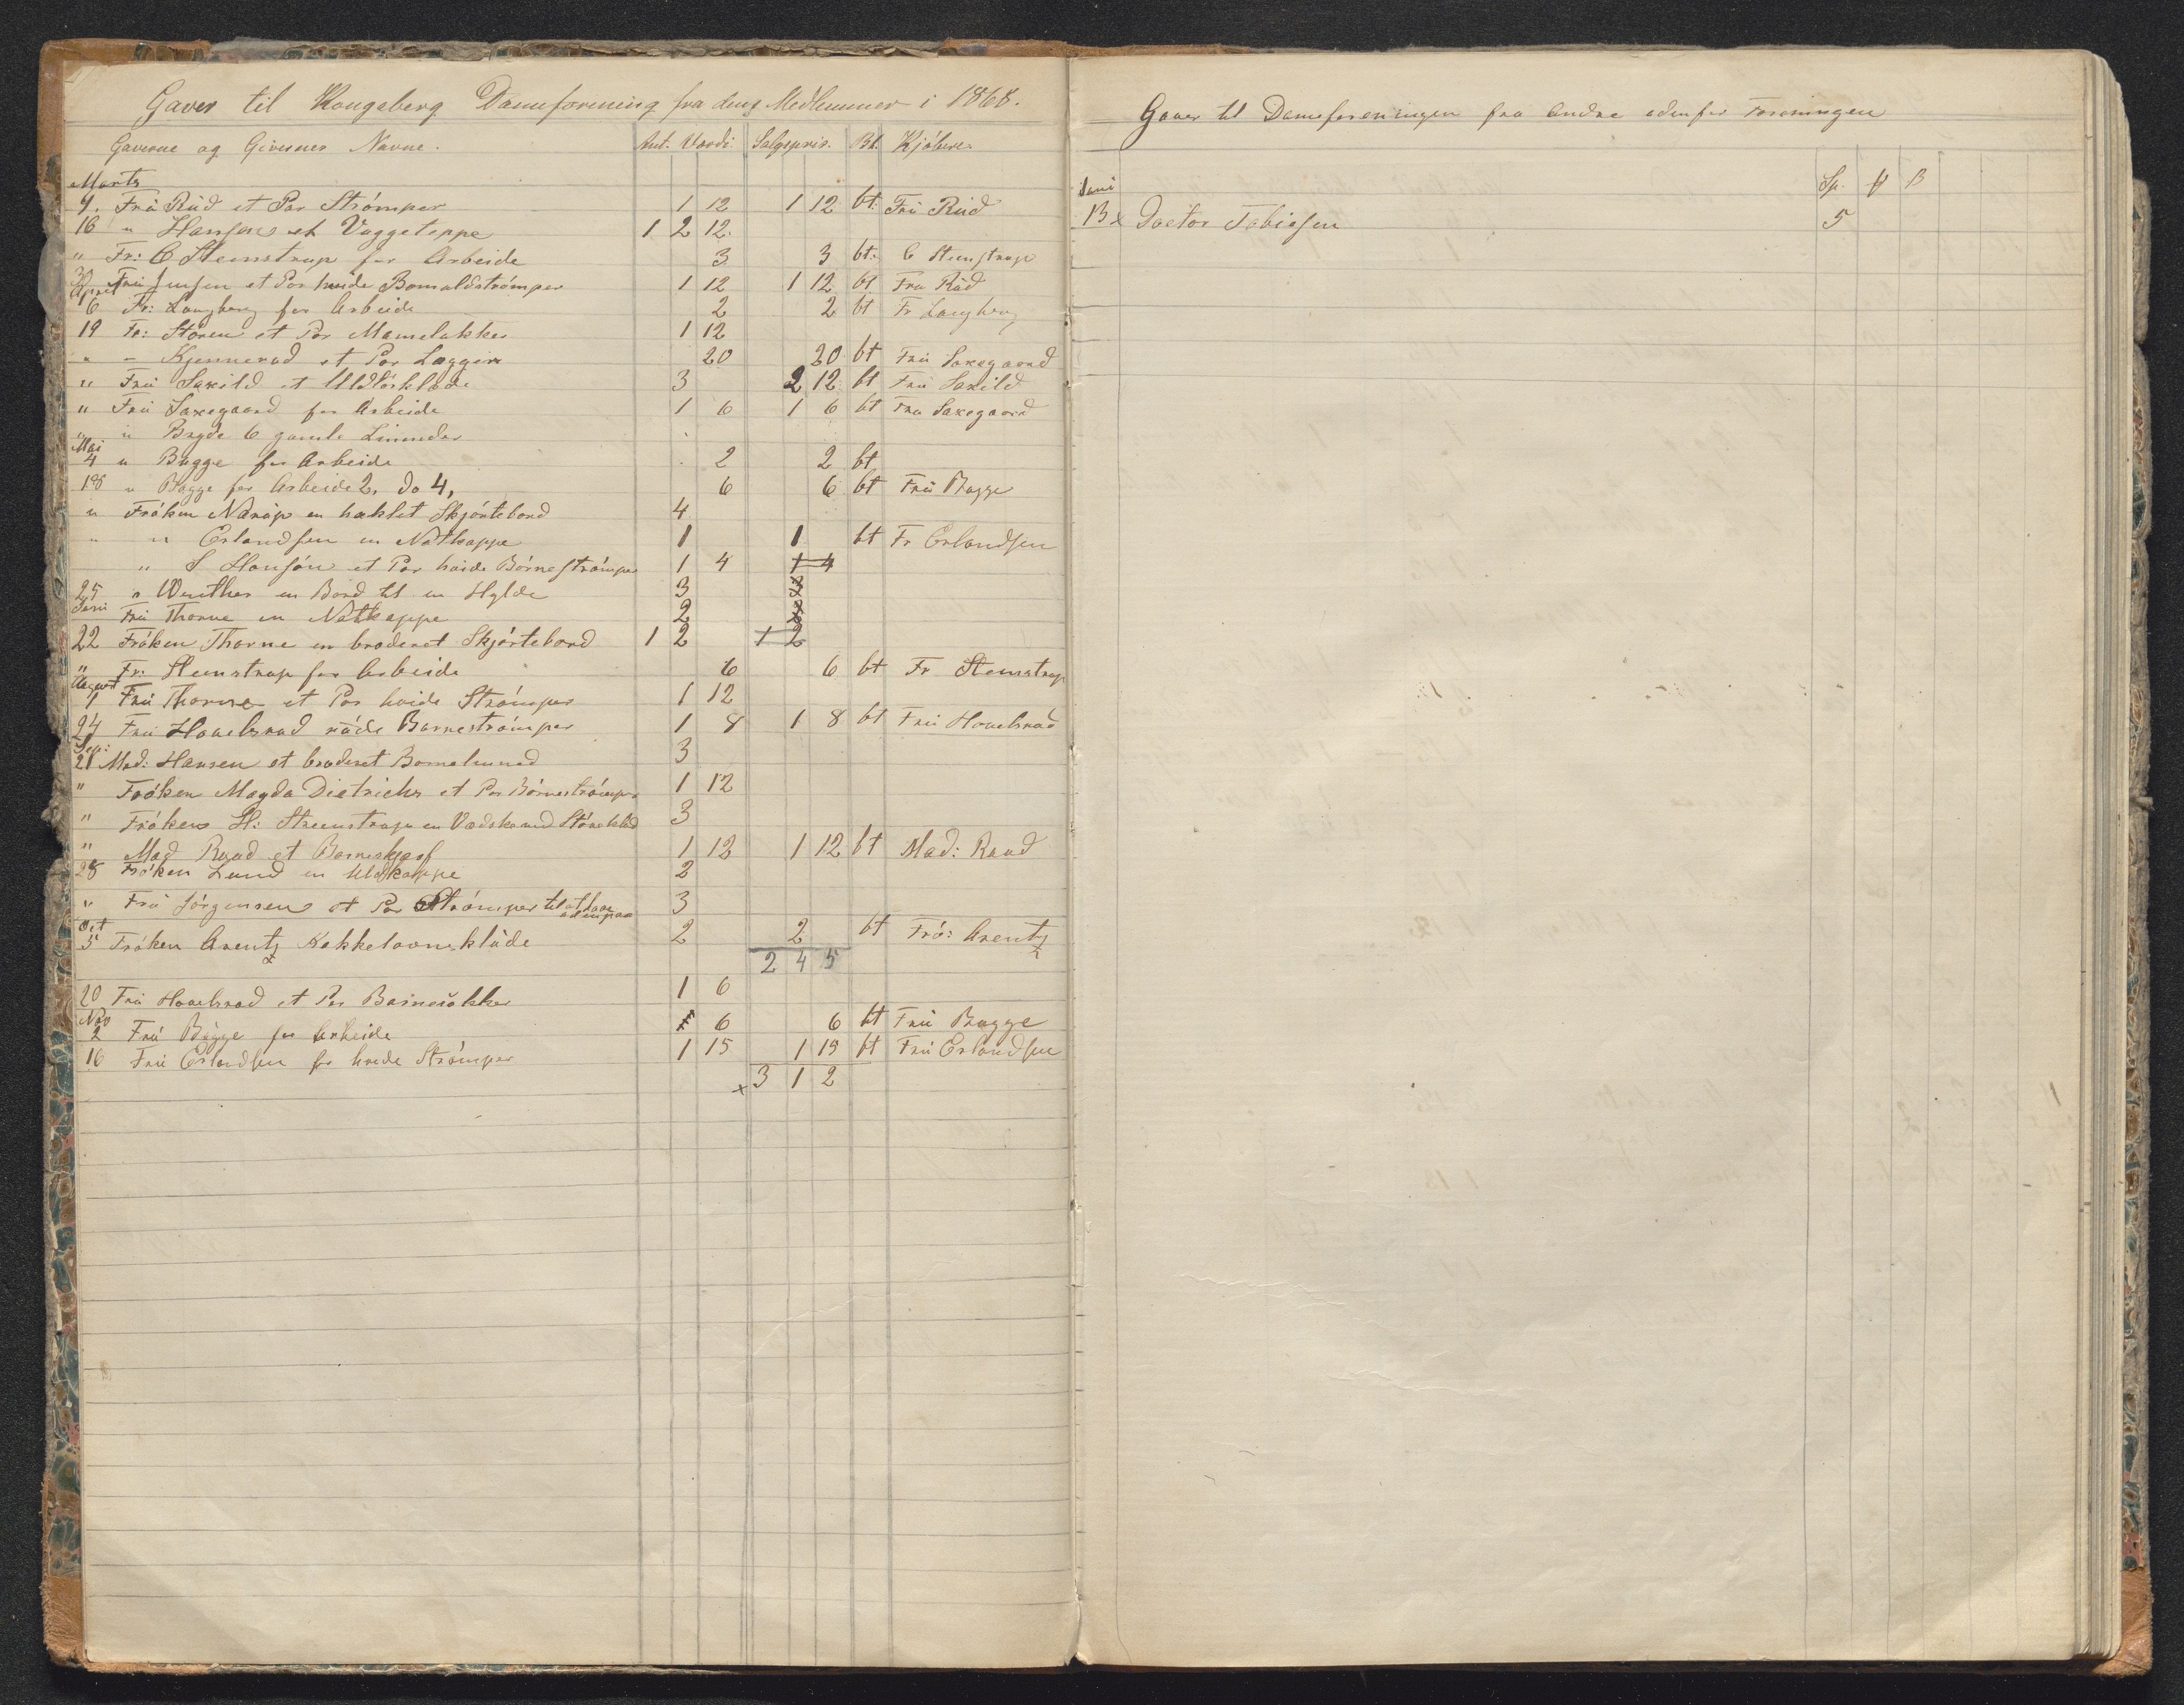 Gaver til Kongsberg Dameforening fra dens Medlemmer i 1868.
Gaverne og Givernes Navne. Ant. Værdi. Salgspris. Bt. Kjøbere
Marts
9. Frü Rüd et Par Strømper 1 12 1 12 bt: Frü Rüd
16 " Hansen et Vuggeteppe 1 2 12.
" Fr: C Steenstrup for Arbeide 3 3 bt. C Steenstrup
30 Frü Jensen et Par hvide Bomuldstrømper 1 12 1 12 bt Fru Rüd
April
6 Fr: Langberg for Arbeide 2 2 bt Fr Langberg
19 Fr: Støren et Par Mamelukker 1 12
" - Kjennerud et Par Lægger 20 20 bt Frü Saxegaard
" Frü Saxild et Uldtørklæde 3 2 12 bt Frü Saxild
" Frü Saxegaard for Arbeide 1 6 1 6 bt Fru Saxegaard
" " Bryde 6 gamle
Mai
4 " Bugge for Arbeide 2 2 bt
18 " Bugge for Arbeide 2, do 4, 6 6 bt Frü Bugge
" Frøken Narup en hæklet Skjørtebord 4
" " Erlandsen en Natkappe 1 1 bt Fr Erlandsen
" S Hansøn et Par hvide Børnestrømper 1 4 1 4
25 " Winther en Bord til en Hylde 3 3
Juni
Frü Thorne en Natkappe 2 2
22 Frøken Thorne en broderet Skjørtebord 1 2 1 2
" Fr: Steenstrup for Arbeide 6 6 bt Fr Steenstrup
August
1 Frü Thorne et Par hvide Strømper 1 12
24 Fru Hovelsrud røde Barnestrømper 1 8 1 8 bt Frü Hovelsrud
Sep:
21 Mad: Hansen et broderet 3
" Frøken Magda Dietrichs et Par Børnestrømper 1 12
" Frøken H: Steenstrup en Vadsk med Støveklud 3
" Mad Ruud et Barneskjærf 1 12 1 12 bt Mad: Ruud
28 Frøken Lund en Uldkappe 2
" Frü Jørgensen et Par Strømper til at
Oct
5 Frøken Arentz Kakkelovnsklæde 2 2 bt Frø: Arentz
2 4 5
20 Frü Hovelsrud et Par Barnesokker 1 6
Nov
2 Frü Bugge for Arbeide 6 6 bt Frü Bugge
16 Frü Erlandsen for hvide Strømper 1 15 1 15 bt Frü Erlandsen
x 3 1 2
Gaver til Dameforeningen fra Andre udenfor Foreningen
Juni Sp. ß
13 x Doctor Tobiesen 5